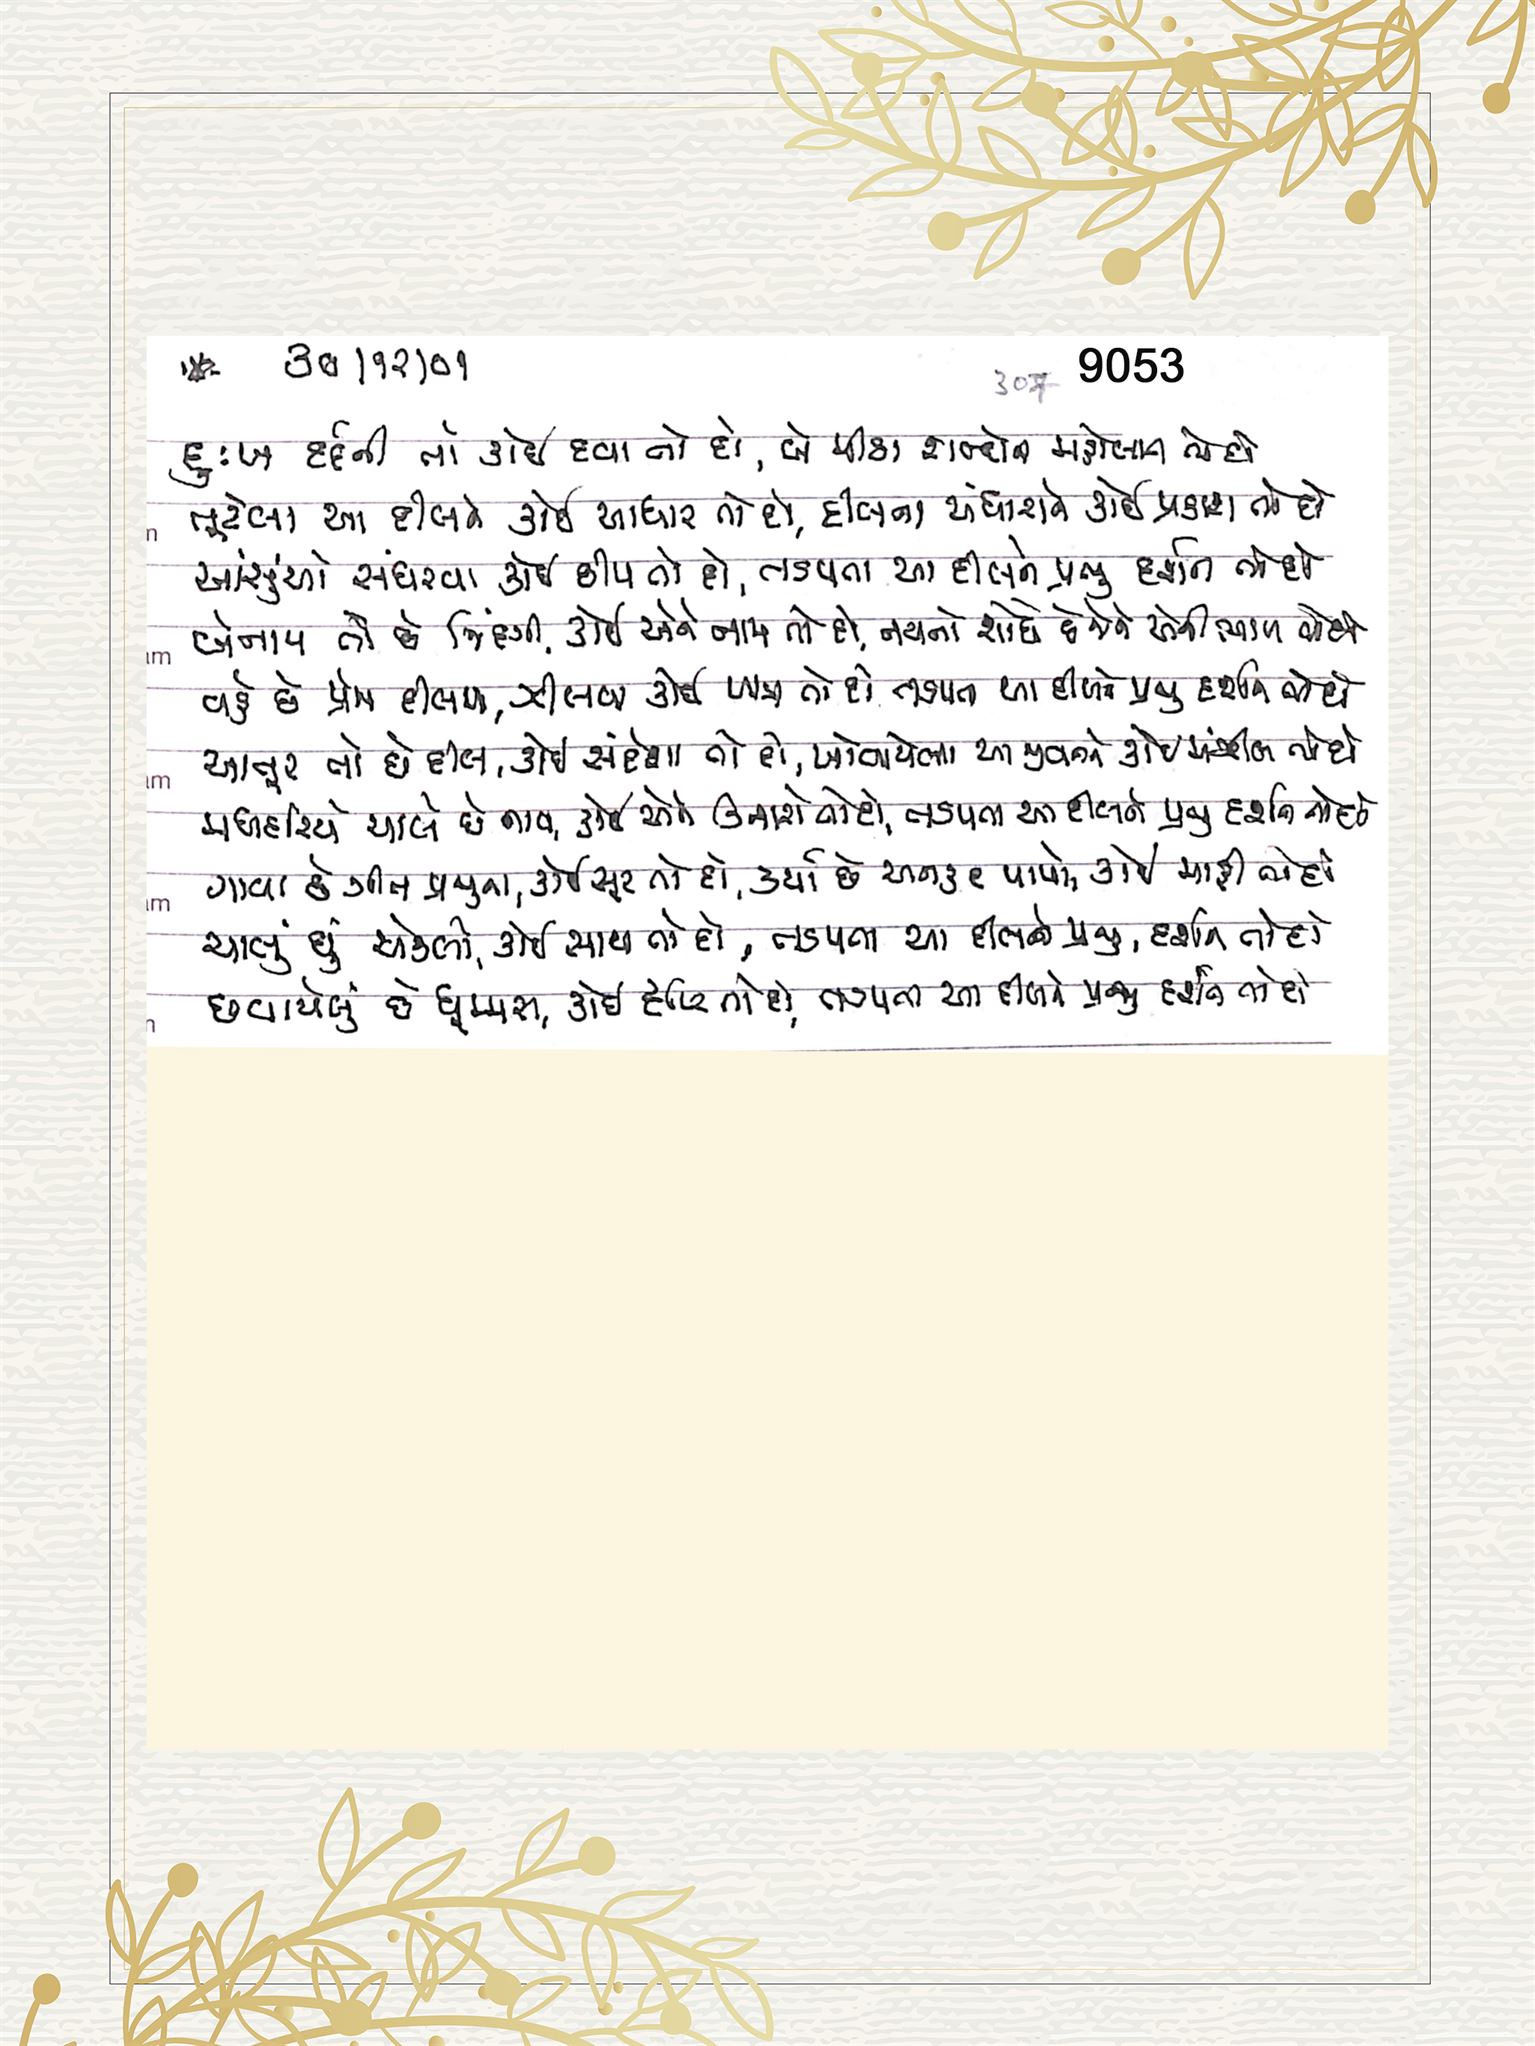 ૩૦/૧૨/૦૧
307 9053
દુઃખ દર્દની તો કોઈ દવા તો દો, બે મીઠા શબ્દોના તો દો
તૂટેલા આ દીલને કોઈ આધાર તો દો, દીલના અંધારાને કોઈ પ્રકાશ તો દો
આંસુંઓ સંઘરવા કોઈ છીપ તો દો, તડપતા આ દીલને પ્રભુ દર્શન તો દો
બેનામ તો છે જિંદગી, કોઈ એને નામ તો દો, નયનો શોધે છે જેને એની તો દો
વહે છે પ્રેમ દીલમાં, ઝીલવા કોઈ પાત્ર તો દો તડપતા આ દીલને પ્રભુ દર્શન તો દો
આતૂર તો છે દીલ, કોઈ સંદેશા તો દો, ખોવાયેલા આ કોઈ મંઝીલ તો દો
મધદરિયે ચાલે છે નાવ, કોઈ એને કિનારો તો દો, તડપતા આ દીલને પ્રભુ દર્શન તો દો
ગાવા છે ગીત પ્રભુના, કોઈ સૂર તો દો, કર્યા છે અનહદ પાપો, કોઈ માફી તો દો
ચાલું છું એકલો, કોઈ સાથ તો દો, તડપતા આ દીલને પ્રભુ, દર્શન તો દો
છવાયેલું છે ધૂમ્મસ, કોઈ તો દો, તડપતા આ દીલને પ્રભુ દર્શન તો દો